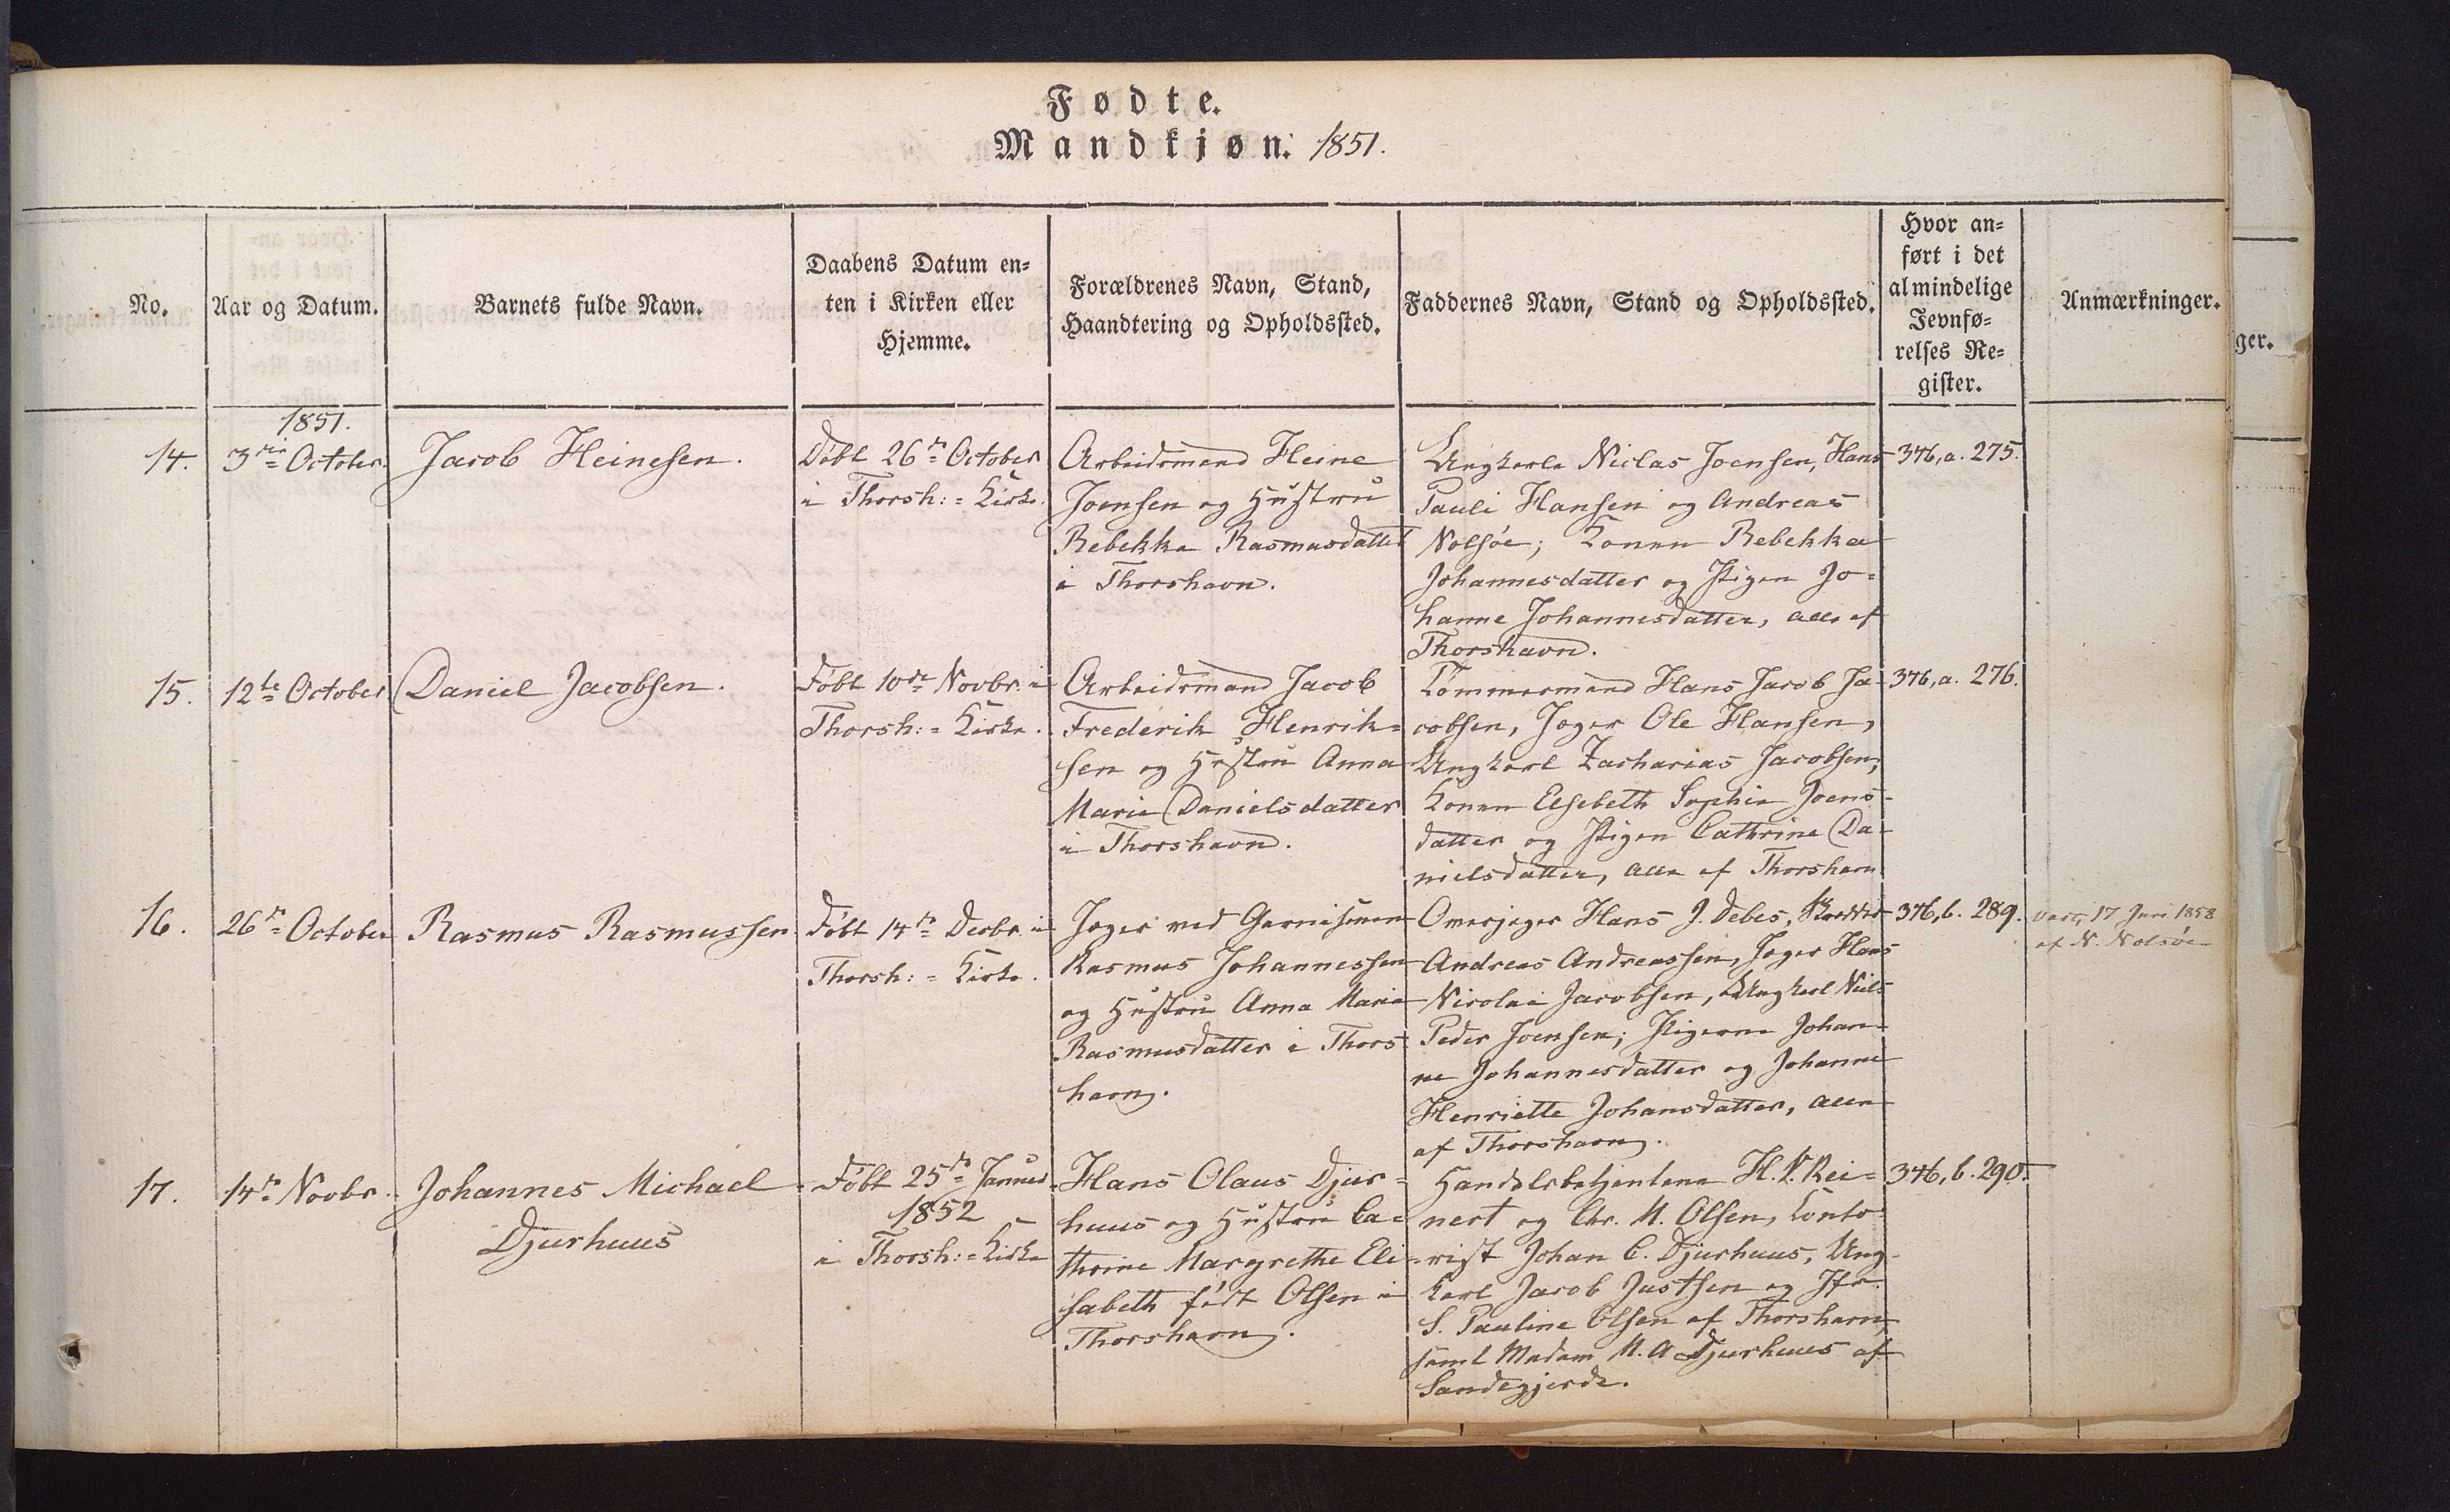 Fødte.
Mandkjøn. 1851.
No.
Aar og Datum.
Barnets fulde Navn.
Daabens Datum en-
ten i Kirken eller
Hjemme.
Forældrenes Navn, Stand,
Haandtering og Opholdssted.
Faddernes Navn, Stand og Opholdssted.
Hvor an-
ført i det
almindelige
Jevnfø-
relses Re-
gister.
Anmærkninger.
ger.
1851.
14.
3die October.
Jacob Heinesen.
Døbt 26de October
i Thorsh:= Kirke.
Arbeidsmand Heine
Joensen og Hustru
Rebekka Rasmusdatter
i Thorshavn.
Ungkarle Niclas Joensen, Hans
Pauli Hansen og Andreas
Nolsøe; Konen Rebekka
Johannesdatter og Pigen Jo-
hanne Johannesdatter, alle af
Thorshavn.
376, a. 275.
15.
12te October
Daniel Jacobsen.
Døbt 10de Novbr. i
Thorsh:= Kirke.
Arbeidsmand Jacob
Frederik Henrik-
sen og Hustru Anna
Marie Danielsdatter
i Thorshavn.
Tømmermand Hans Jacob Ja-
cobsen, Jæger Ole Hansen,
Ungkarl Zacharias Jacobsen;
Konen Elsebeth Sophie Joens-
datter og Pigen Cathrine Da-
nielsdatter, alle af Thorshavn
376, a. 276.
16.
26de October
Rasmus Rasmussen
Døbt 14de Decbr. i
Thorsh:= Kirke.
Jæger ved Garnisonen
Rasmus Johannessen
og Hustru Anna Maria
Rasmusdatter i Thors
havn.
Overjæger Hans J. Debes,
Andreas Andreassen, Jæger Hans
Nicolai Jacobsen, Ungkarl Niels
Peder Joensen; Pigerne Johan-
ne Johannesdatter og Johanne
Henriette Johansdatter, alle
af Thorshavn.
376, b. 289.
vacc. 17 Juni 1858
af N. Nolsøe
17.
14de Novbr.
Johannes Michael
Djurhuus
Døbt 25de Januar
1852
i Thorsh:= Kirke
Hans Olaus Djur-
huus og Hustru Ca-
thrine Margrethe Eli-
sabeth født Olsen i
Thorshavn.
Handelsbetjentene H. P. Rei-
nert og Chr. M. Olsen, Conto-
rist Johan C. Djurhuus, Ung-
karl Jacob Justsen og Jfr.
S. Pauline Olsen af Thorshavn,
samt Madam M. A Djurhuus af
Sandegjerde.
376, b. 290.